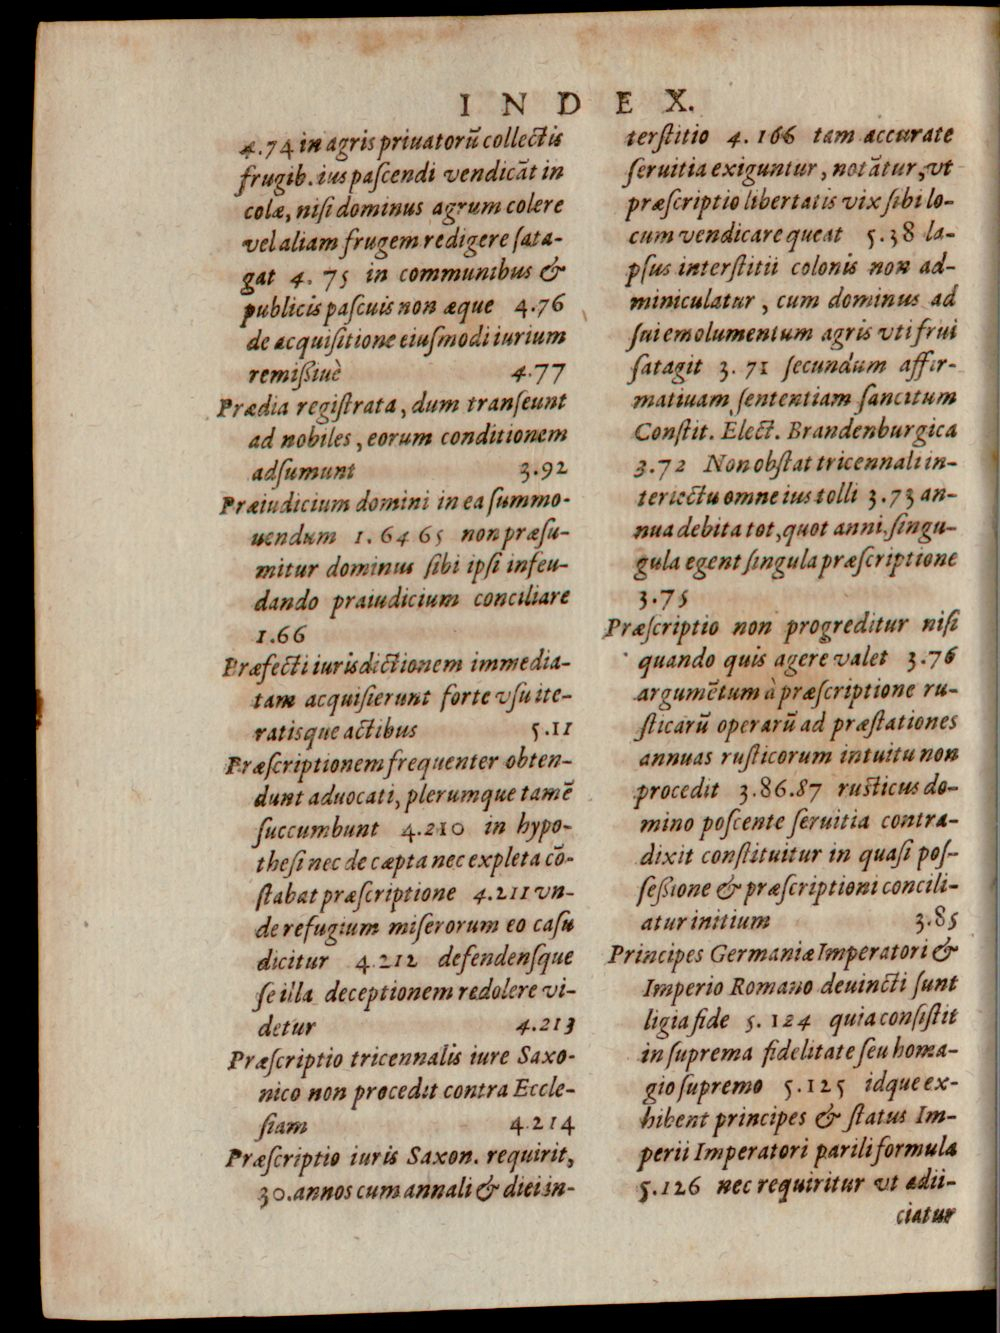 INDEX.
4.74 in agris priuatorũ collectis
frugib. ius paſcendi vendicãt in
colæ, niſi dominus agrum colere
vel aliam frugem redigere ſata-
gat 4. 75 in communibus &
publicis paſcuis non æque 4.76
de acquiſitione eiuſmodi iurium
remißiuè 4.77
Prædia regiſtrata, dum tranſeunt
ad nobiles, eorum conditionem
adſumunt 3.92
Præiudicium domini in ea ſummo-
uendum 1. 64 65 non præſu-
mitur dominus ſibi ipſi infeu-
dando praiudicium conciliare
1.66
Præfecti iurisdictionem immedia-
tam acquiſierunt forte vſu ite-
ratisque actibus 5.11
Præſcriptionem frequenter obten-
dunt aduocati, plerumque tamẽ
ſuccumbunt 4.210 in hypo-
theſi nec de cæpta nec expleta cõ-
ſtabat præſcriptione 4.211 vn-
de refugium miſerorum eo caſu
dicitur 4.212 defendenſque
ſe illa deceptionem redolere vi-
detur 4.213
Præſcriptio tricennalis iure Saxo-
nico non procedit contra Eccle-
ſiam 4.214
Præſcriptio iuris Saxon. requirit,
30. annos cum annali & diei in-
terſtitio 4. 166 tam accurate
ſeruitia exiguntur, notãtur, vt
præſcriptio libertatis vix ſibi lo-
cum vendicare queat 5.38 la-
pſus interſtitii colonis non ad-
miniculatur, cum dominus ad
ſui emolumentum agris vti frui
ſatagit 3. 71 ſecundum affir-
matiuam ſententiam ſancitum
Conſtit. Elect. Brandenburgica
3.72 Non obſtat tricennali in-
teriectu omne ius tolli 3.73 an-
nua debita tot, quot anni, ſingu-
gula egent ſingula præſcriptione
3.75
Præſcriptio non progreditur niſi
quando quis agere valet 3.76
argumẽtum à præſcriptione ru-
ſticarũ operarũ ad præſtationes
annuas ruſticorum intuitu non
procedit 3.86.87 ruſticus do-
mino poſcente ſeruitia contra-
dixit conſtituitur in quaſi poſ-
ſeßione & præſcriptioni concili-
atur initium 3.85
Principes Germaniæ Imperatori &
Imperio Romano deuincti ſunt
ligia fide 5. 124 quia conſiſtit
in ſuprema fidelitate ſeu homa-
gio ſupremo 5.125 idque ex-
hibent principes & ſtatus Im-
perii Imperatori parili formula
5.126 nec requiritur vt adii-
ciatur